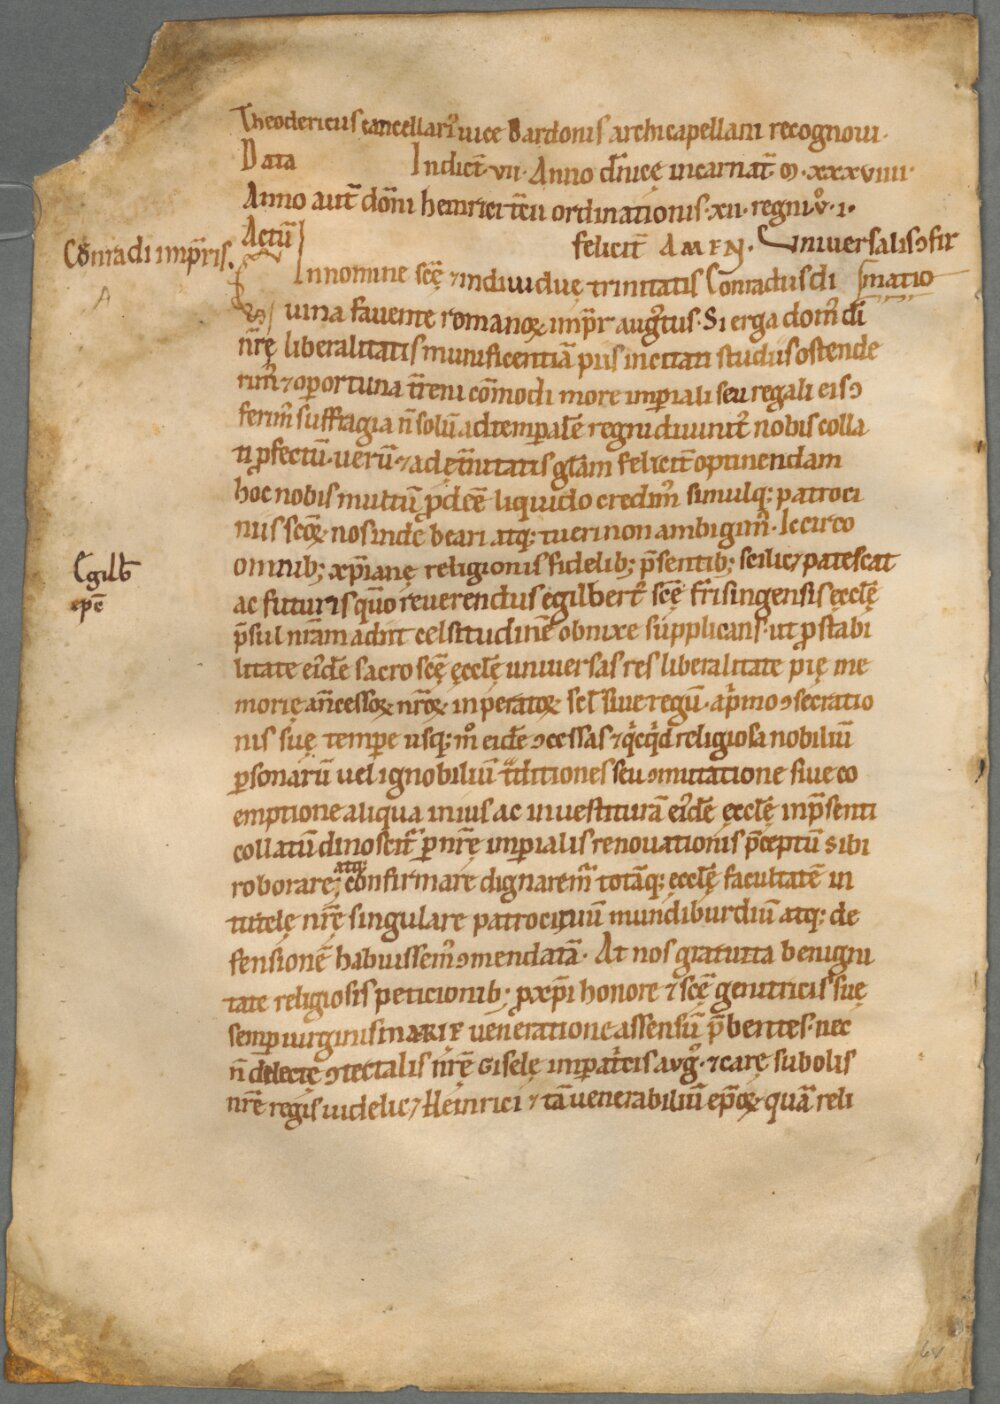 Theodericus cancellari᷒ uice Bardonis archicapellani recognoui.
Data Indict̄. vii. Anno dn̄icę incarnat̄. ꝏ. xxxviiii.
Anno aut̄ dōni heinrici t̄cii ordinationis. xii. regni. v̊. i.
Actū felicit̄ AMEN. Vniuersalis ɔfir
Conradi imp̄ris.
Innomine scę̄ ⁊ indiuiduę trinitatis Conradus di matio
uina fauente romanoꝝ imp̄r aug᷒tus. Si erga dom᷒ di
nr̄ę liberalitatis munificentiā piis incitati studiis ostende
rim᷒ ⁊ oportuna t̄reni cōmodi more imꝑiali seu regali eis ɔ
ferim᷒ suffragia n̄ solū ad temꝑalē regni diuinit᷒ nobis colla
ti ꝓfectū. uerū ⁊ ad ęt̄nitatis gl̄am felicit̄ optinendam
hoc nobis multū ꝓdēē liquido credim᷒ simulq; patroci
niis sc̄oꝝ. nos inde beari atq; tueri non ambigim᷒. Iccirco
omnib; xp̄ianę religionis fidelib; p̄sentib; scilic& patescat
Egilb̄
ac futuris qūo reuerendus egilbert᷒ scę̄ frisingensis ęccl̄ę
ep̄c
p̄sul nr̄am adiit celsitudinē obnixe supplicans. ut ꝓ stabi
litate ei᷒dē sacro scę̄ ęccl̄ę uniuersas res liberalitate pię me
morię añcessoꝝ nr̄oꝝ inperatoꝝ scl̄ siue regū. a p̓mo ɔsecratio
nis suę tempere usq; m̊ eidē ɔcessas ⁊ q̓cq̓d religiosa nobiliū
ꝑsonarū uel ignobiliū t̄ditiones seu ɔmutatione siue co
emptione aliqua in ius ac inuestiturā ei᷒dē ęccl̄ę inp̄senti
collatū dinoscit᷒ ꝑ nr̄ę imꝑialis renouationis p̄ceptū sibi
atq;
roborare; confirmare dignarem᷒ totāq; ęccl̄ę facultatē in
tutelę nr̄ę singulare patrociniū mundiburdiū atq; de
fensionē habuissem᷒ ɔmendatā. At nos gratuita benigni
tate religiosis peticionib; ꝓ xp̄i honore ⁊ scę̄ genitricis suę
semꝑ uirginis MARIE ueneratione assensū p̄bentes. nec
n̄ delectę ɔtectalis nr̄ę Giselę imꝑat̓cis aug᷒. ⁊ carę subolis
nr̄ę regis uidelic& Heinrici ⁊ tā uenerabiliū ep̄oꝝ quā reli